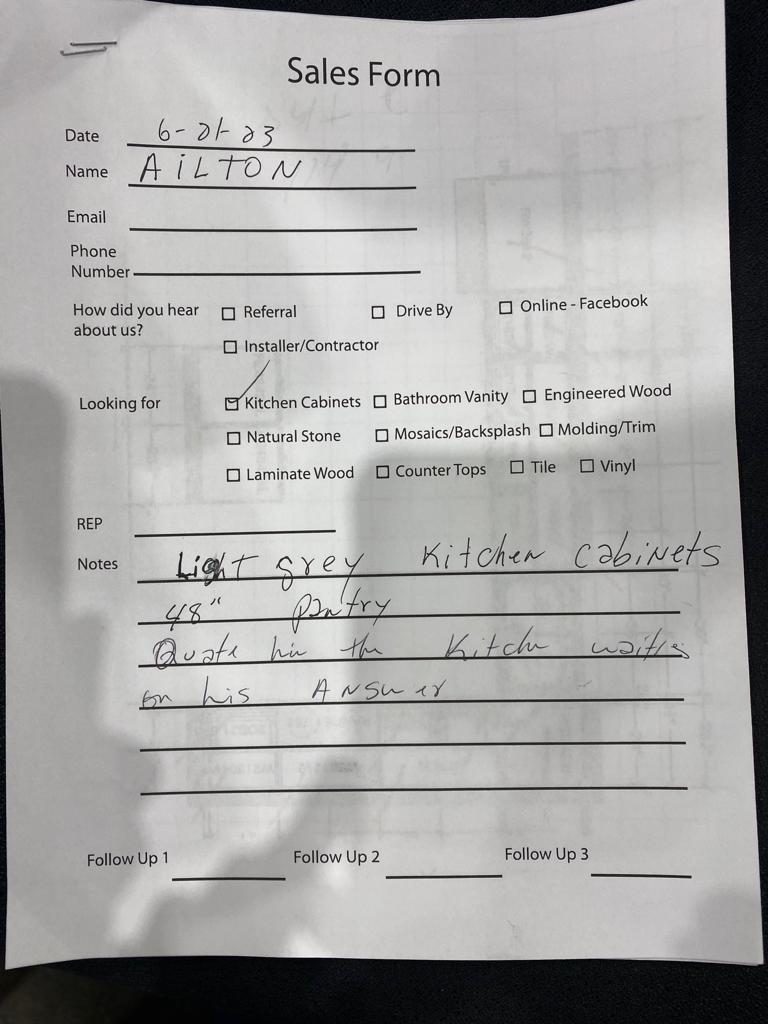 Sales Form
Date 6-21-23
Name AiLTON
Email
Phone
Number
How did you hear about us? ☐ Referral ☐ Drive By ☐ Online - Facebook
☐ Installer/Contractor
Looking for ☑ Kitchen Cabinets ☐ Bathroom Vanity ☐ Engineered Wood
☐ Natural Stone ☐ Mosaics/Backsplash ☐ Molding/Trim
☐ Laminate Wood ☐ Counter Tops ☐ Tile ☐ Vinyl
REP
Notes Light grey Kitchen Cabinets
48" pantry
Quote him the Kitche
on his Answer
Follow Up 1 Follow Up 2 Follow Up 3